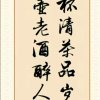 杯清茶品岁
壶老酒醉人